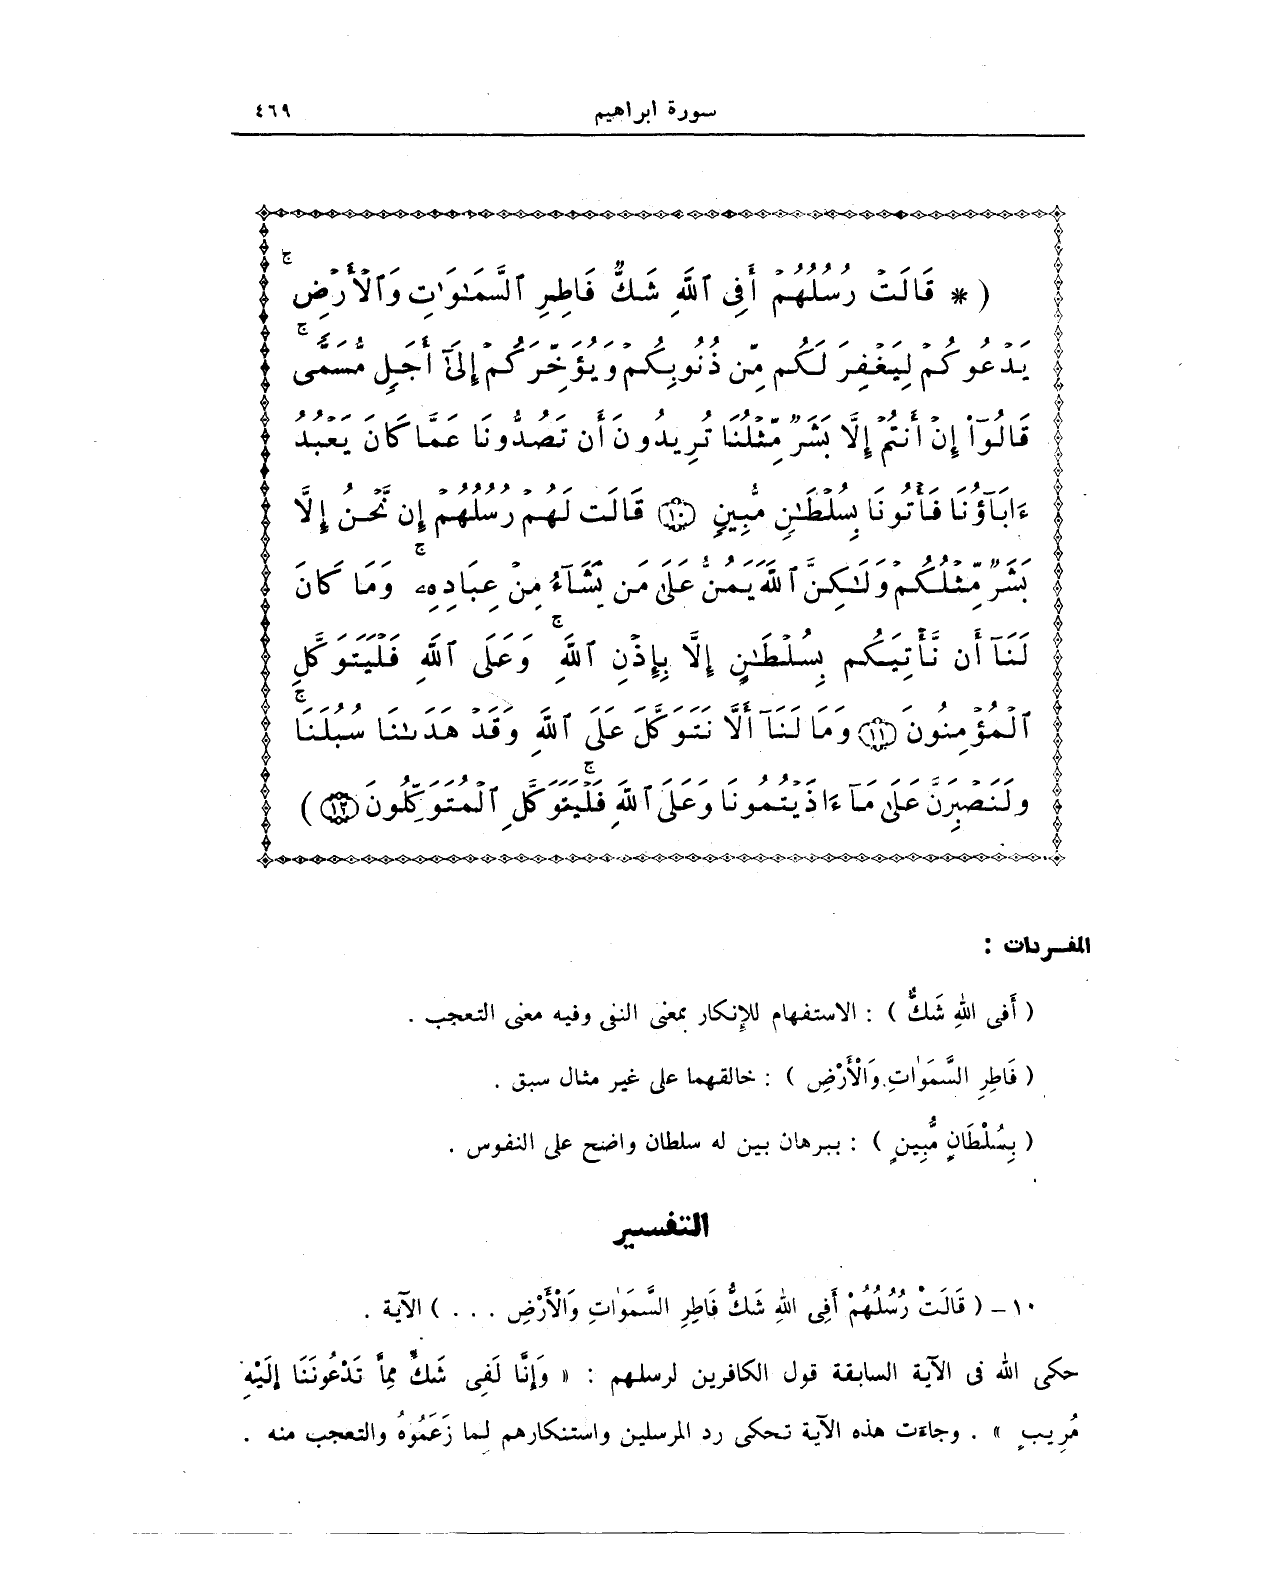 سورة ابراهيم ٤٦٩
( * قَالَتْ رُسُلُهُمْ أَفِى ٱللَّهِ شَكٌّ فَاطِرِ ٱلسَّمَٰوَٰتِ وَٱلْأَرْضِ ۖ
يَدْعُوكُمْ لِيَغْفِرَ لَكُم مِّن ذُنُوبِكُمْ وَيُؤَخِّرَكُمْ إِلَىٰٓ أَجَلٍ مُّسَمًّى ۚ
قَالُوٓا۟ إِنْ أَنتُمْ إِلَّا بَشَرٌ مِّثْلُنَا تُرِيدُونَ أَن تَصُدُّونَا عَمَّا كَانَ يَعْبُدُ
ءَابَآؤُنَا فَأْتُونَا بِسُلْطَٰنٍ مُّبِينٍ ١٠ قَالَتْ لَهُمْ رُسُلُهُمْ إِن نَّحْنُ إِلَّا
بَشَرٌ مِّثْلُكُمْ وَلَٰكِنَّ ٱللَّهَ يَمُنُّ عَلَىٰ مَن يَشَآءُ مِنْ عِبَادِهِۦ ۖ وَمَا كَانَ
لَنَآ أَن نَّأْتِيَكُم بِسُلْطَٰنٍ إِلَّا بِإِذْنِ ٱللَّهِ ۚ وَعَلَى ٱللَّهِ فَلْيَتَوَكَّلِ
ٱلْمُؤْمِنُونَ ١١ وَمَا لَنَآ أَلَّا نَتَوَكَّلَ عَلَى ٱللَّهِ وَقَدْ هَدَىٰنَا سُبُلَنَا ۚ
وَلَنَصْبِرَنَّ عَلَىٰ مَآ ءَاذَيْتُمُونَا ۚ وَعَلَى ٱللَّهِ فَلْيَتَوَكَّلِ ٱلْمُتَوَكِّلُونَ ١٢ )
المفــردات :
( أَفى اللهِ شَكٌّ ) : الاستفهام للإنكار بمعنى النفى وفيه معنى التعجب .
( فَاطِرِ السَّمَوَاتِ وَالْأَرْضِ ) : خالقهما على غير مثال سبق .
( بِسُلْطَانٍ مُّبِينٍ ) : ببرهان بين له سلطان واضح على النفوس .
التفسير
١٠ – ( قَالَتْ رُسُلُهُمْ أَفِى اللهِ شَكٌّ فَاطِرِ السَّمَوَاتِ وَالْأَرْضِ . . . ) الآية .
حكى الله فى الآية السابقة قول الكافرين لرسلهم : « وَإِنَّا لَفِى شَكٍّ مِمَّا تَدْعُونَنَا إِلَيْهِ
مُرِيبٍ » . وجاءت هذه الآية تحكى رد المرسلين واستنكارهم لما زَعَمُوهُ والتعجب منه .